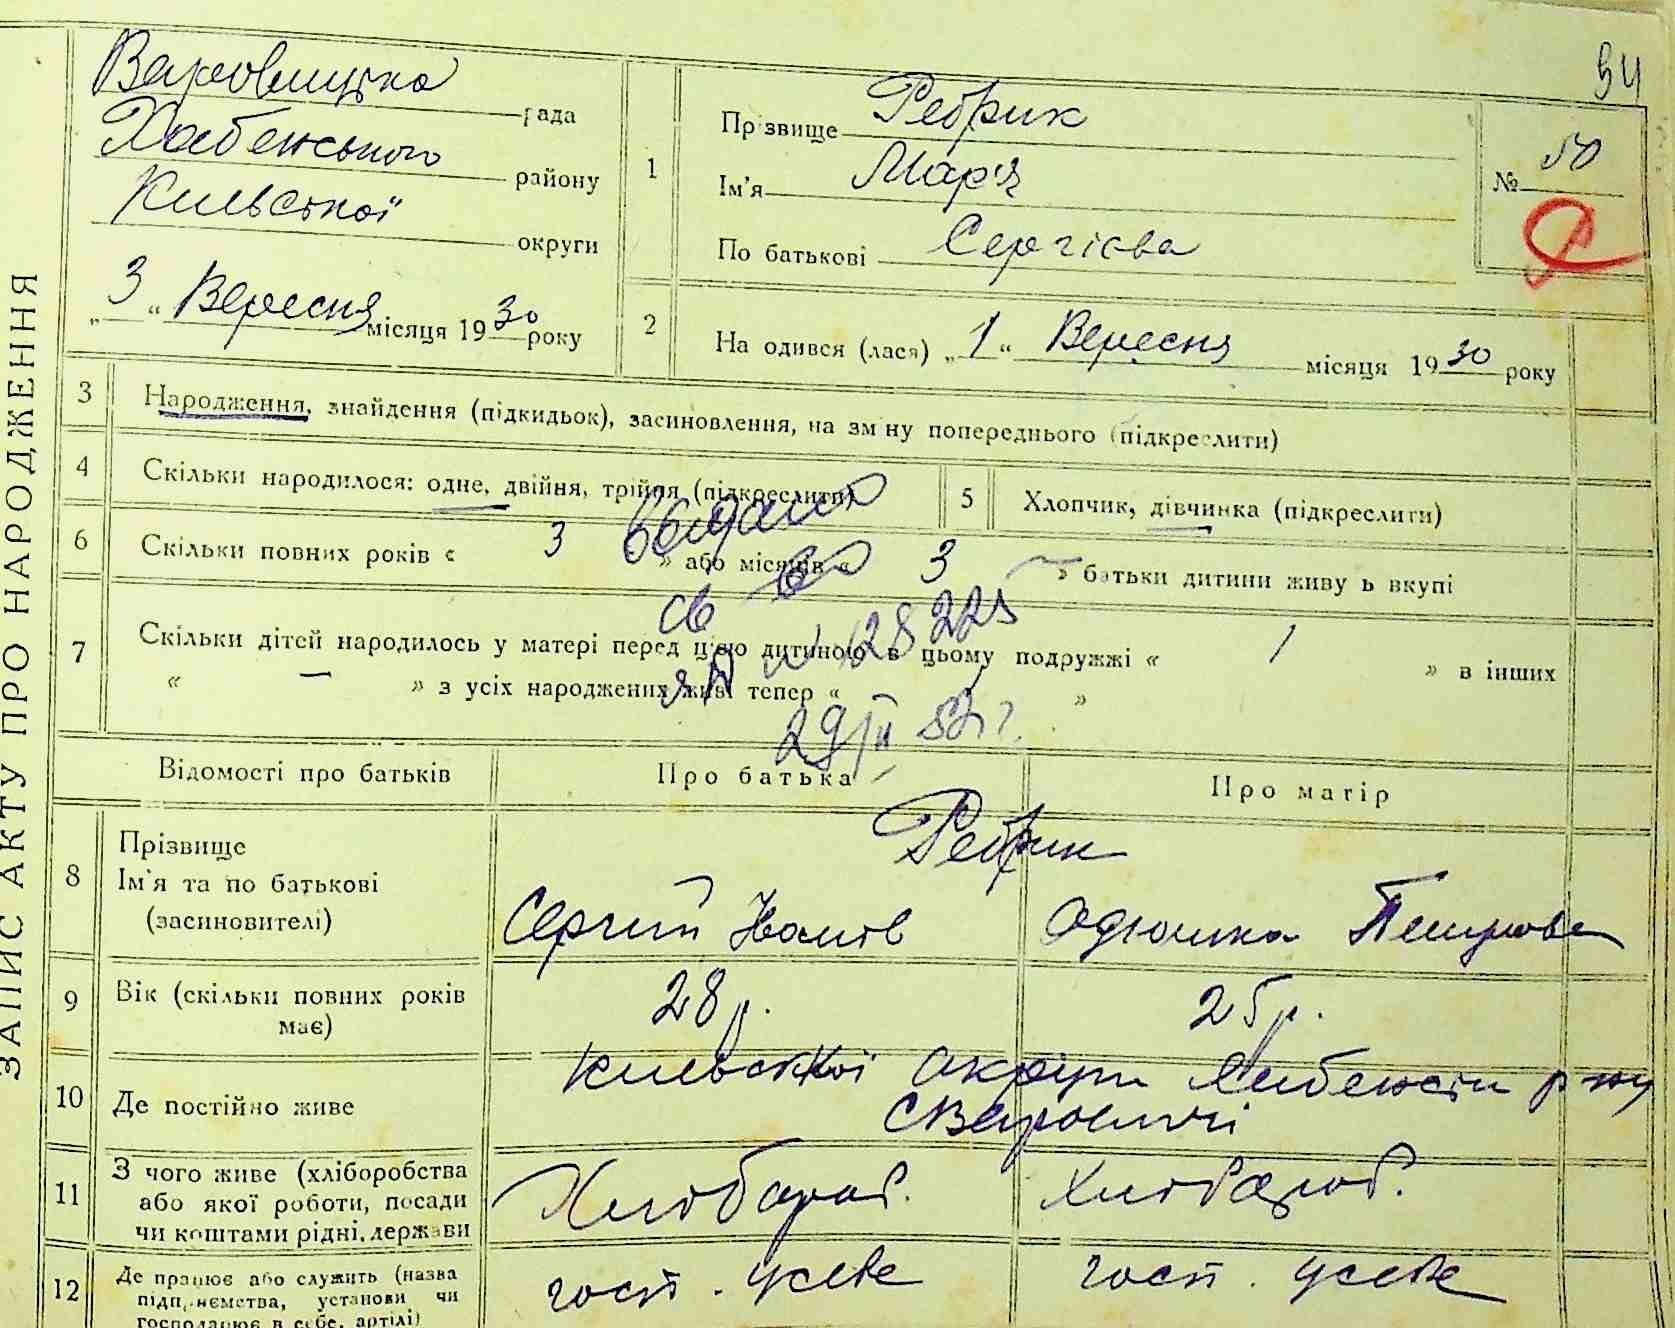 94
ЗАПИС АКТУ ПРО НАРОДЖЕННЯ
Варовицька рада
Хабенського району
Київської округи
„3“ Вересня місяця 1930 року
1
Прізвище Ребрик
Ім'я Мар'я
По батькові Сергієва
№ 50
2
На одився (лася) „1“ Вересня місяця 1930 року
3 Народження, знайдення (підкидьок), засиновлення, на зміну попереднього (підкреслити)
4 Скільки народилося: одне, двійня, трійня (підкреслити)
5 Хлопчик, дівчинка (підкреслити)
6 Скільки повних років « 3 » або місяців « 3 » батьки дитини живуть вкупі
7 Скільки дітей народилось у матері перед цією дитиною в цьому подружжі « 1 » в інших
« — » з усіх народжених живі тепер « »
выдано
св во
28225
29/II 52 г.
Відомості про батьків
Про батька
Про матір
8 Прізвище
Ім'я та по батькові
(засиновителі)
Ребрик
Сергий Иванов
Одюшка Петрова
9 Вік (скільки повних років має)
28 р.
25 р.
10 Де постійно живе
Київської Округи Хабенськ р-ну
с Варовичі
11 З чого живе (хліборобства
або якої роботи, посади
чи коштами рідні, держави
Хліборob.
Хліборob.
12 Де працює або служить (назва
підприємства, установи чи
господарює в себе, артілі)
госп. у себе
госп. у себе